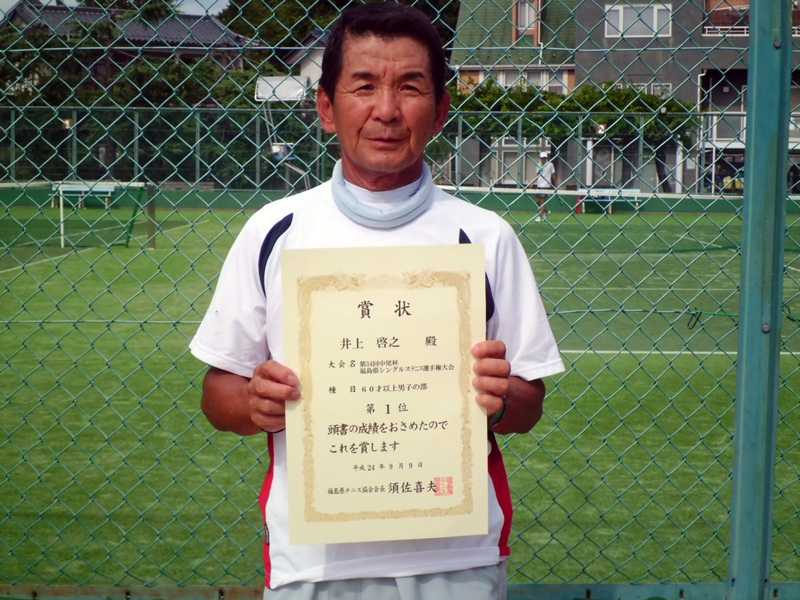 賞状
井上 啓之 殿
大会名 第34回中尾杯
福島県シングルステニス選手権大会
種目 60才以上男子の部
第1位
頭書の成績をおさめたので
これを賞します
平成24年9月9日
福島県テニス協会会長 須佐喜夫